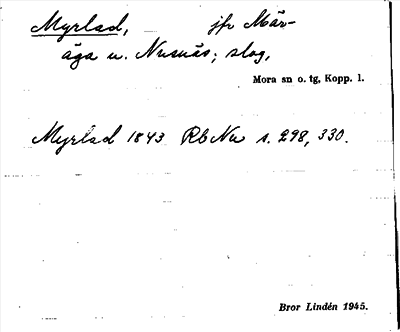 Myrlad, jfr Mär-
äga u. Nusnäs; slog,
Mora sn o. tg, Kopp. l.
Myrlad 1843 Rb Nu s. 298, 330.
Bror Lindén 1945.